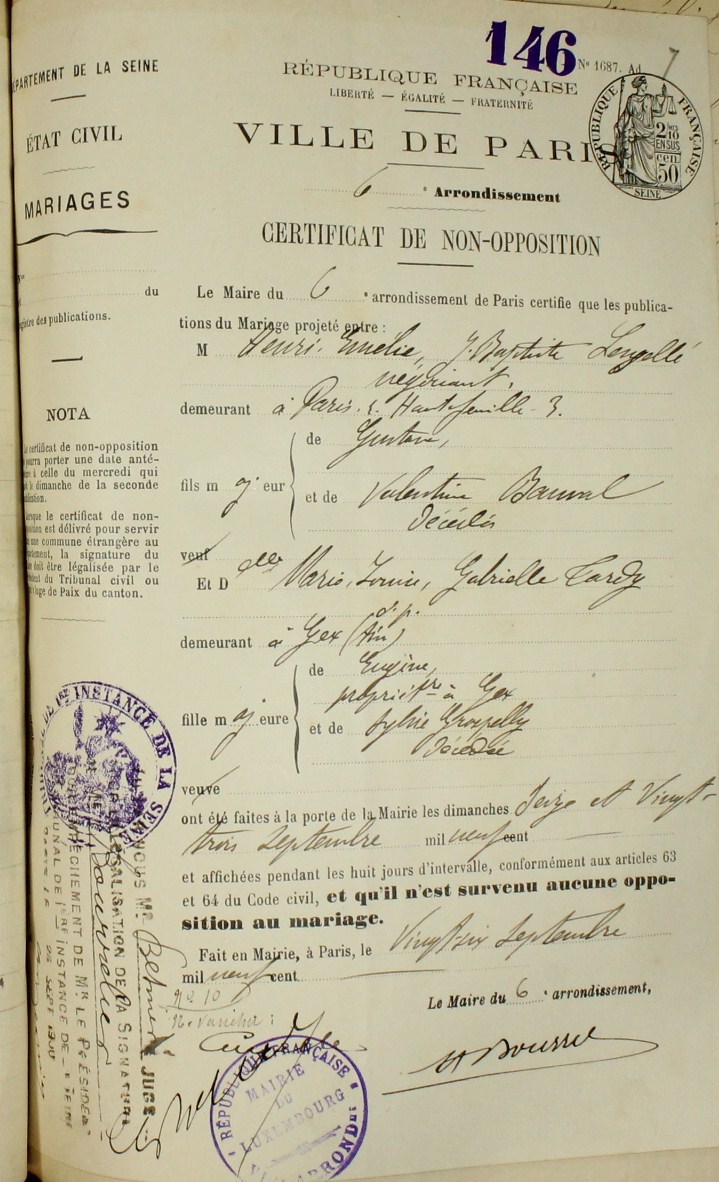 146
N° 1687. Ad
7
DÉPARTEMENT DE LA SEINE
ÉTAT CIVIL
MARIAGES
du
registre des publications.
NOTA
Le certificat de non-opposition
pourra porter une date anté-
à celle du mercredi qui
le dimanche de la seconde
le certificat de non-
est délivré pour servir
une commune étrangère au
la signature du
être légalisée par le
du Tribunal civil ou
Juge de Paix du canton.
RÉPUBLIQUE FRANÇAISE
LIBERTÉ — ÉGALITÉ — FRATERNITÉ
VILLE DE PARIS
RÉPUBLIQUE FRANÇAISE
2/10 EN SUS
50 cen
SEINE
6 e Arrondissement
CERTIFICAT DE NON-OPPOSITION
Le Maire du 6 e arrondissement de Paris certifie que les publica-
tions du Mariage projeté entre :
M Henri, Emélie, J. Baptiste
négociant,
demeurant à Paris. r. Hautefeuille 3.
de Gustave,
fils m aj eur
et de Valentine
Décédés
veuf
Et D elle Marie, Louise, Gabrielle Tardy
s.p.
demeurant à Gex (Ain)
de Eugène,
propriétre à Gex
fille m aj eure
et de Sylvie
Décédée
veuve
ont été faites à la porte de la Mairie les dimanches Seize et Vingt-
trois Septembre mil neuf cent
et affichées pendant les huit jours d'intervalle, conformément aux articles 63
et 64 du Code civil, et qu'il n'est survenu aucune oppo-
sition au mariage.
Fait en Mairie, à Paris, le Vingt six Septembre
mil neuf cent
Le Maire du 6 e arrondissement,
RÉPUBLIQUE FRANÇAISE
MAIRIE
DU
LUXEMBOURG
ARRONDT
INSTANCE DE LA SEINE
NOUS Mr JUGE
LÉGALISATION DE LA SIGNATURE
EMPÊCHEMENT DE MR LE PRÉSIDENT
TRIBUNAL DE 1ERE INSTANCE DE
SEPT 1900